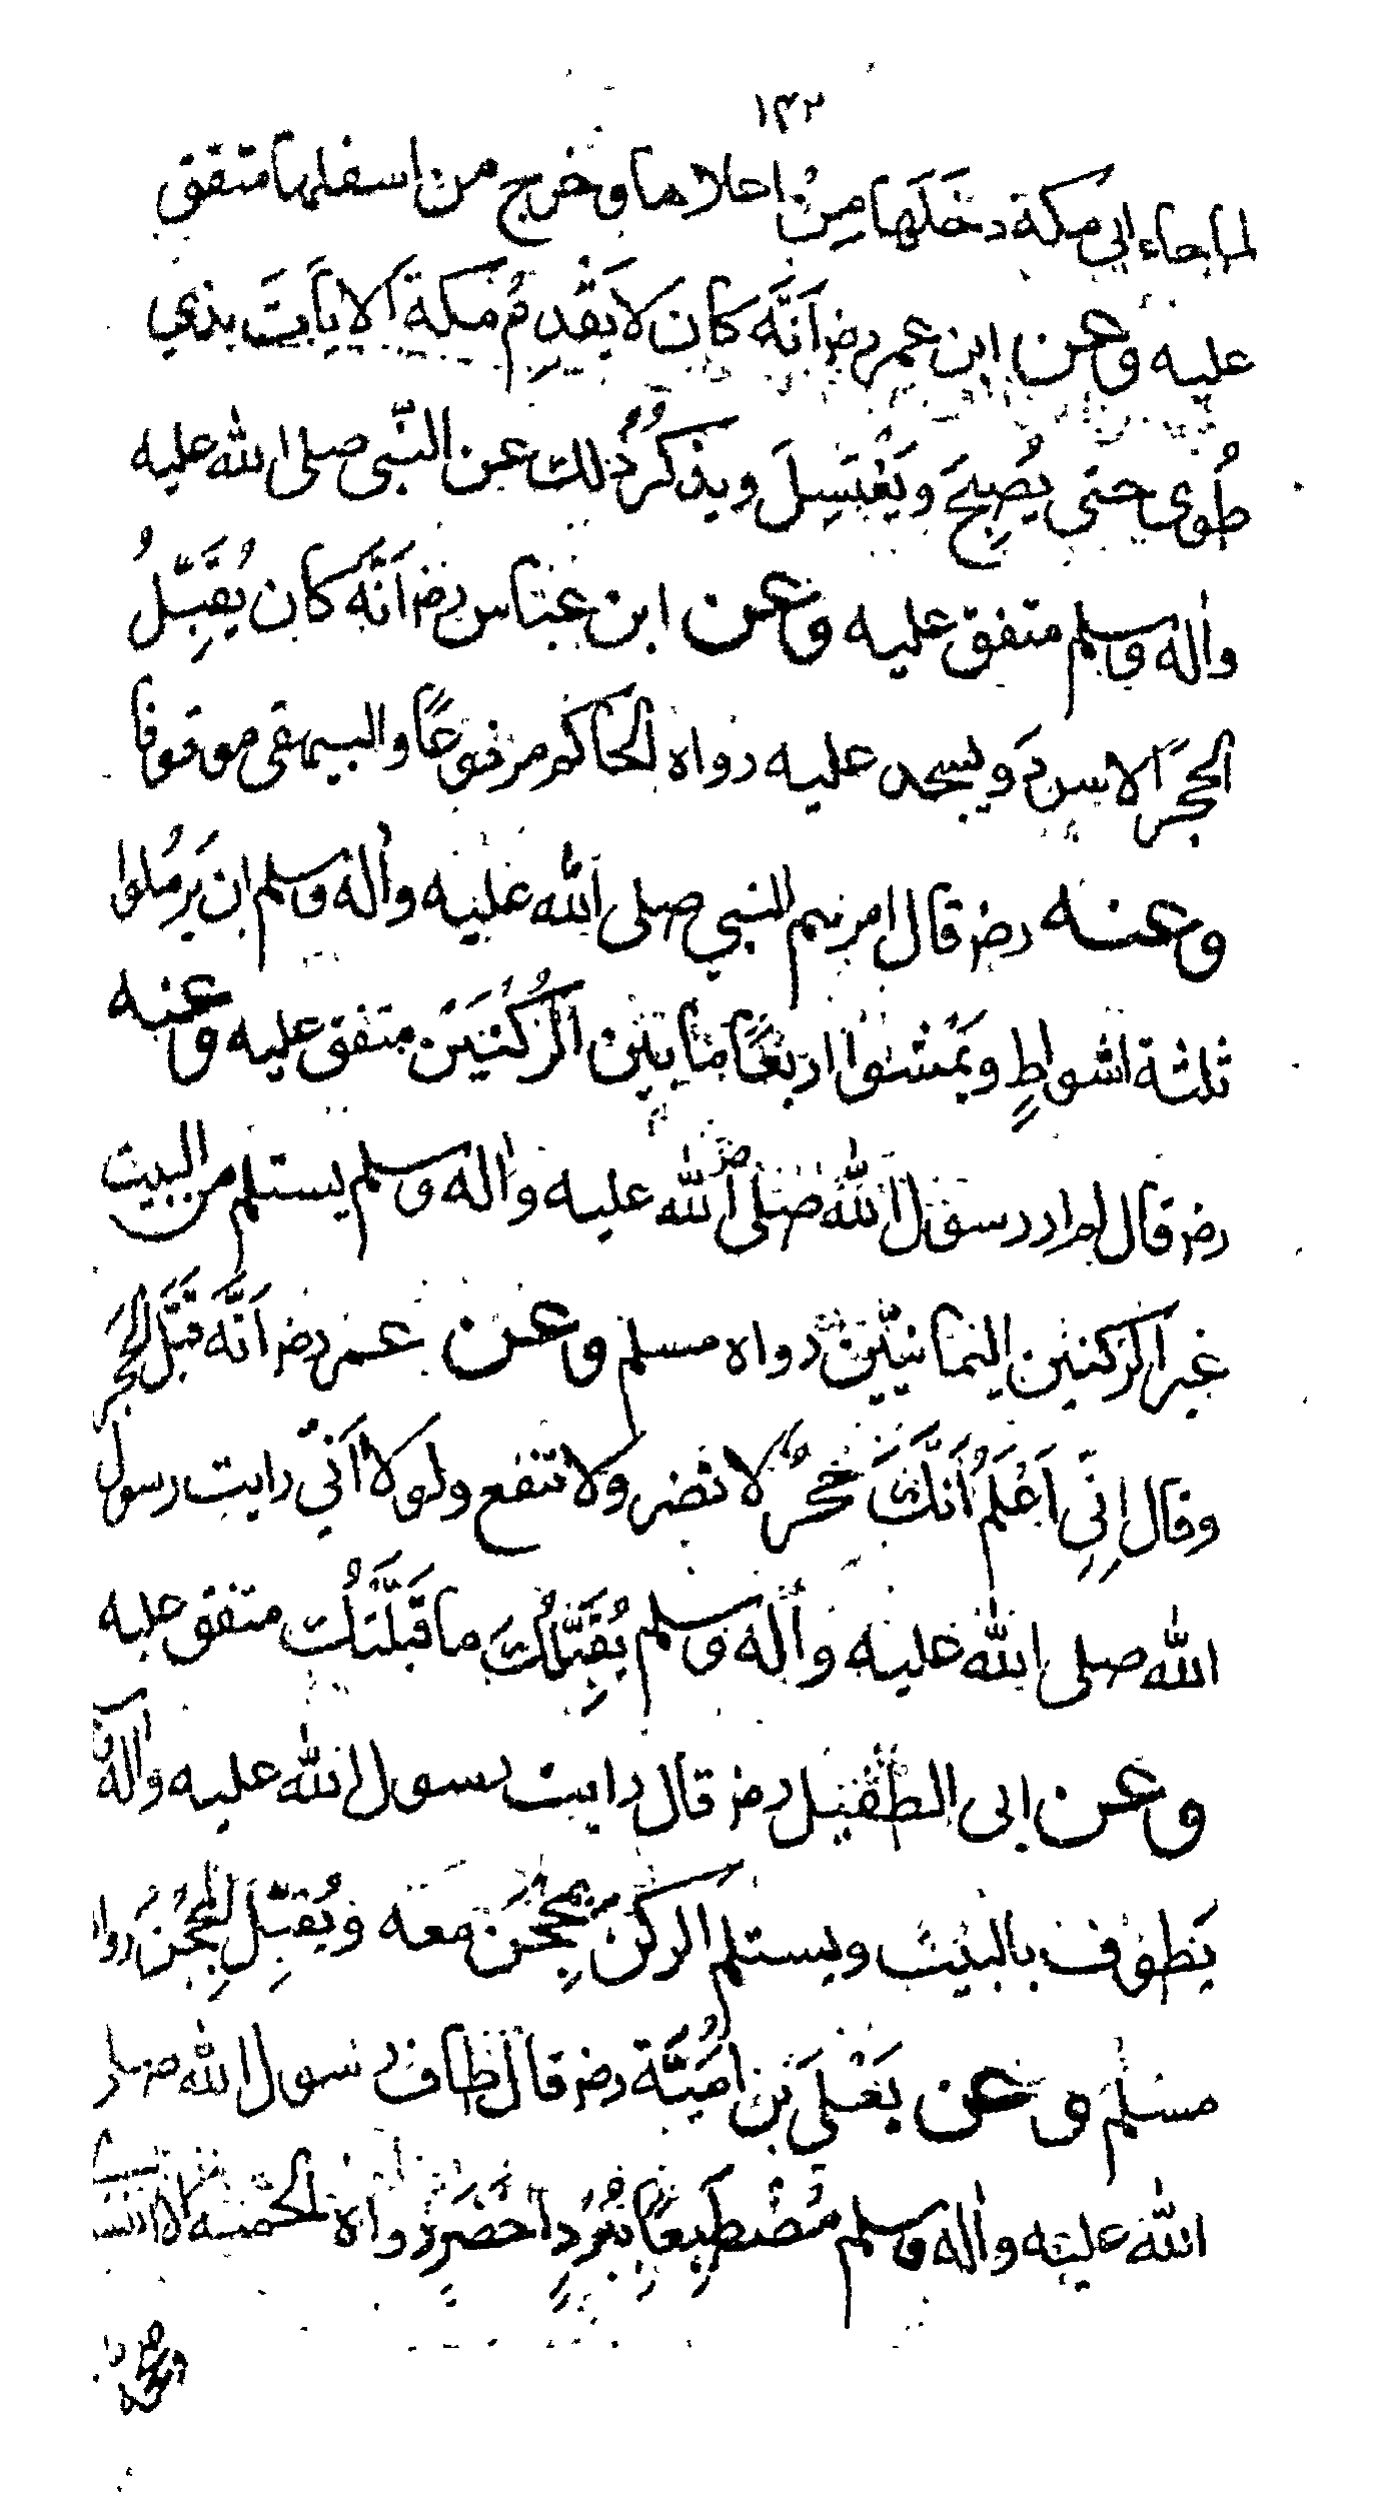 ١٣٢
لما جاء الى مكة دخَلَها مِنْ اعلاها وخرج من اسفلها متفق
عليه وعن ابن عمر رض اَنَّه كان لا يَقْدِمُ مكة اِلا بَاتَ بذي
طُوى حتى يُصبِحَ ويَغْتَسِلَ ويذكرُ ذلك عن النّبى صلى الله عليه
واٰله وسلم متفق عليه وعن ابن عبّاس رض اَنَّه كان يُقَبِّلُ
الحجَرَ الاسودَ ويسجد عليه رواه الحاكم مرفوعًا والبيهقى موقوفا
وعنه رض قال امرهم النبي صلى الله عليه واٰله وسلم ان يَرمُلوا
ثلثة اشواطٍ ويَمْشوا اربعًا ما بين الرُكْنَيَن متفق عليه وعنه
رض قال لم ار رسول الله صلى الله عليه واٰله وسلم يستلم من البيت
غير الركنين اليمانيّين رواه مسلم وعن عمر رض اَنَّه قَبَّل الحجَر
وقال اِنِّي اَعْلَمُ اَنَّكَ حَجَرٌ لا تضر ولا تنفع ولولا اَنّي رايت رسول
الله صلى الله عليه واٰله وسلم يُقَبِّلُكَ ما قَبَّلْتُك متفق عليه
وعن ابى الطفيل رض قال رايت رسول الله عليه واٰله
يَطوف بالبيت ويستلم الركن بمِحْجَنٍ معَه ويُقبِّل المِحْجَنَ روا
مسلم وعن يَعْلَى بن اُمَيَّة رض قال طاف رسول الله صلى
الله عليه واٰله وسلم مُضْطَبِعًا بِبُرْدٍ اَخْضَرَ رواه الخمسة الا النسا